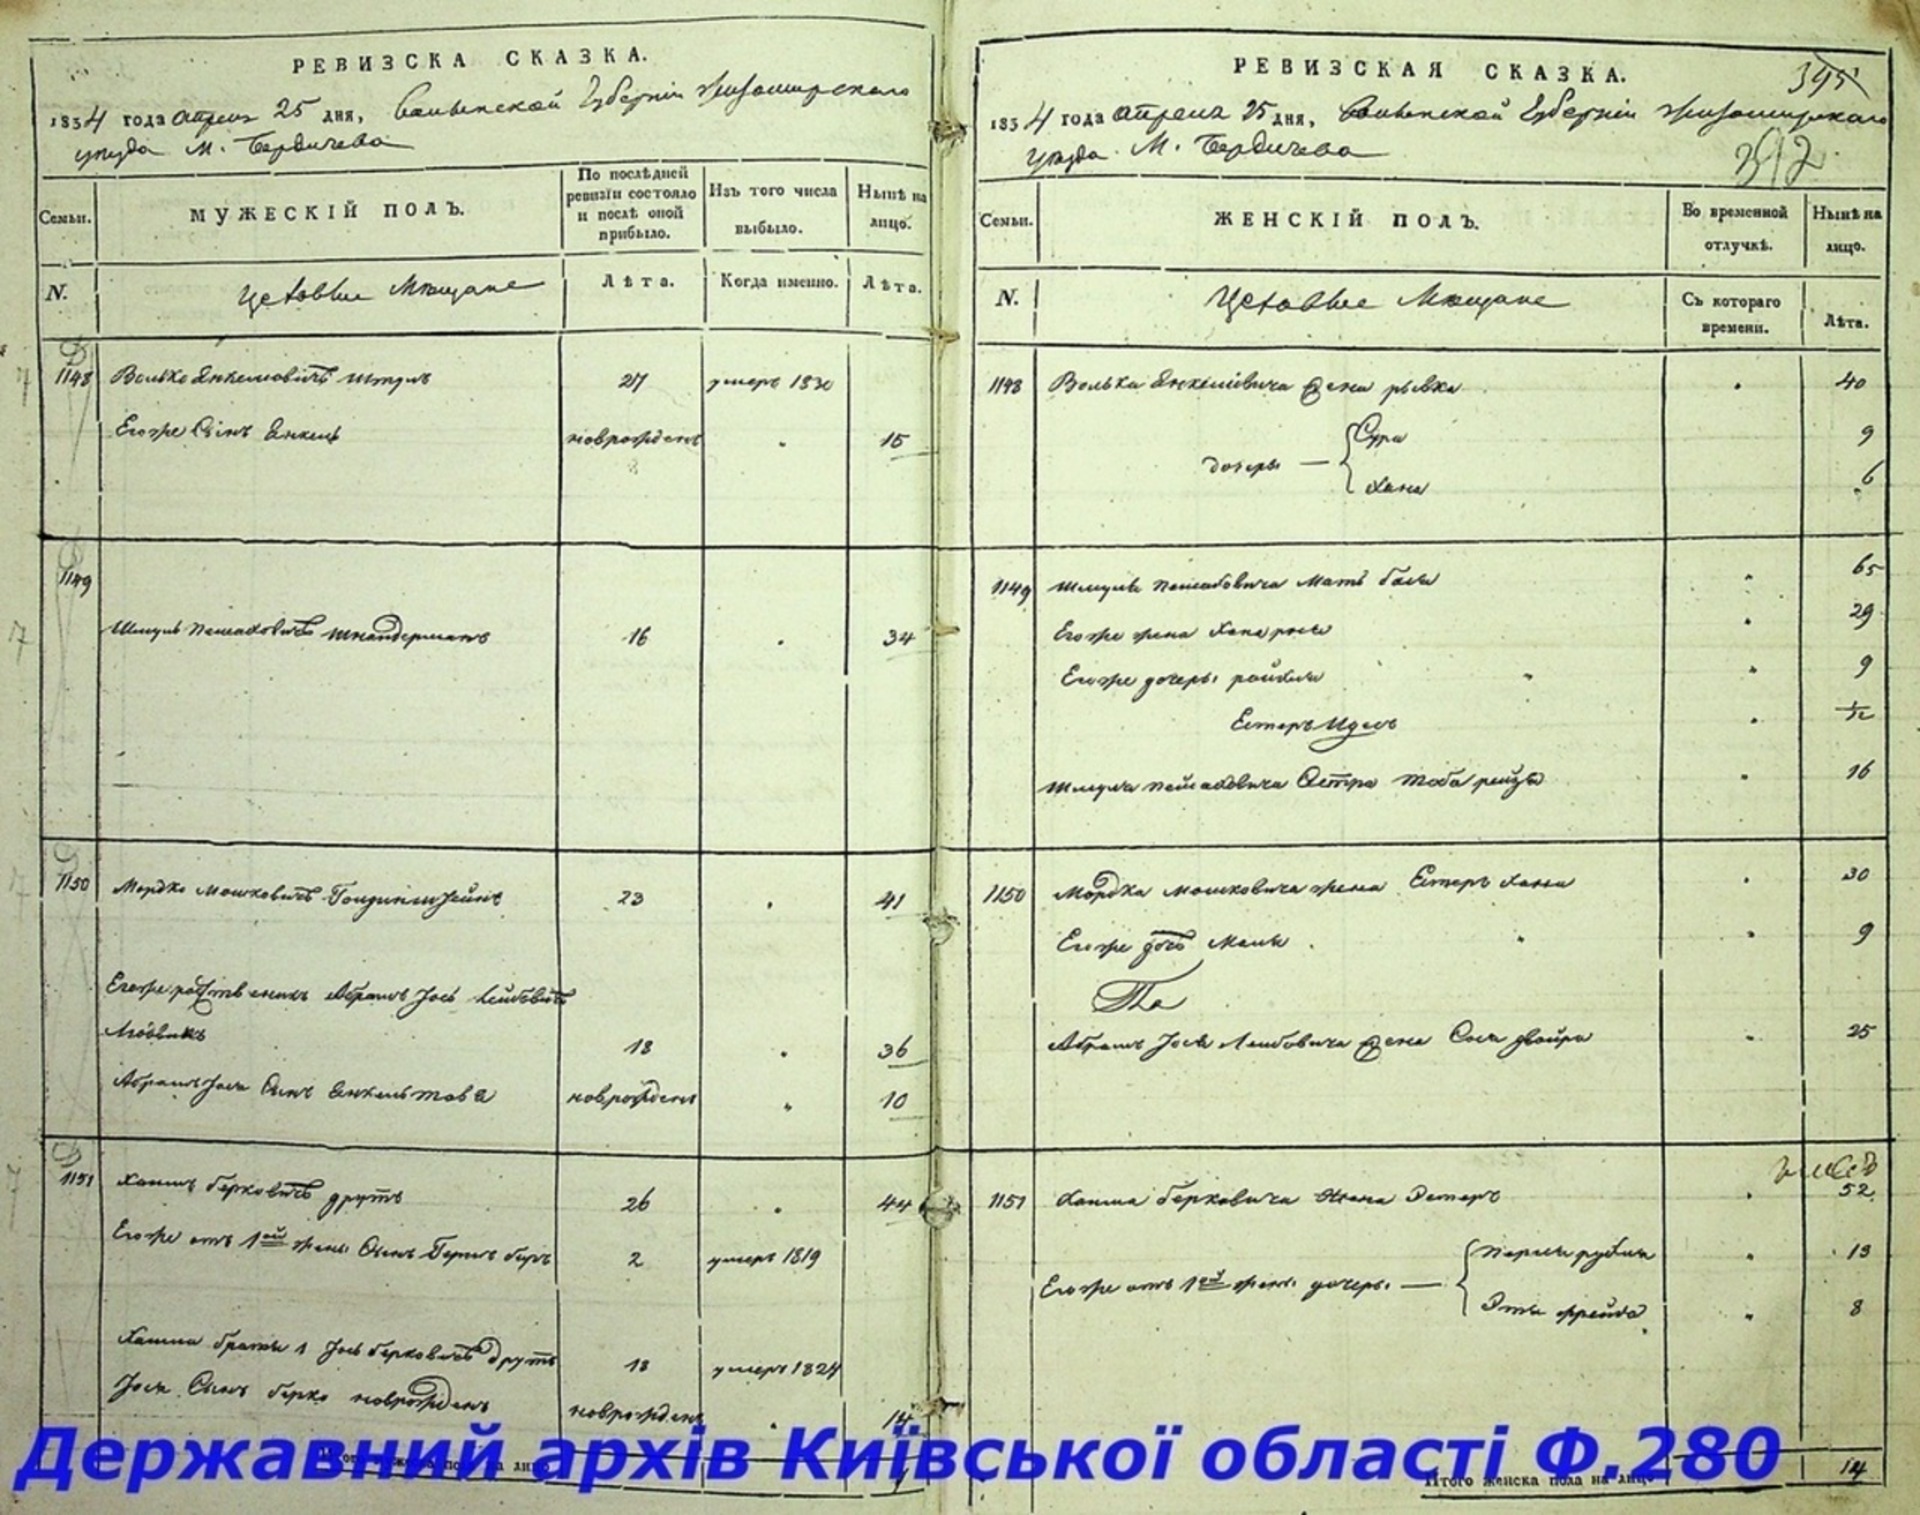 РЕВИЗСКА СКАЗКА.
1834 года апреля 25 дня, Волынской Губернии Житомирского
уезда М. Бердичева
Семьи.
МУЖЕСКІЙ ПОЛЪ.
По послѣдней ревизіи состояло и послѣ оной прибыло.
Изъ того числа выбыло.
Нынѣ на лицо.
N.
Цеховые Мещане
Лѣта.
Когда именно.
Лѣта.
1148 Волько Янкелиовичъ Штулъ 27 умеръ 1830
Его же Сынъ Янкель новорожденъ " 15
1149
Шмуль Пейсаховичъ Шнайдерманъ 16 " 34
1150 Мордко Мошковичъ 23 " 41
Его же родственникъ Абрамъ Іось Лейбовичъ
18 " 36
Абрамъ Іося Сынъ Янкель новорожденъ " 10
1151 Хаимъ Берковичъ Друтъ 26 " 44
Его же отъ 1ой жены Сынъ Гершъ Беръ 2 умеръ 1819
Хаима братъ 1 Іось Берковичъ Друтъ 18 умеръ 1824
Іося Сынъ Берко новорожденъ новорожденъ " 14
РЕВИЗСКАЯ СКАЗКА.
395
392
1834 года апреля 25 дня, Волынской Губернии Житомирскаго
уезда М. Бердичева
Семьи.
ЖЕНСКІЙ ПОЛЪ.
Во временной отлучкѣ.
Нынѣ на лицо.
N.
Цеховые Мещане
Съ котораго времени.
Лѣта.
1148 Волька Янкеліовича жена Рывка " 40
дочери — Сура 9
Хана 6
1149 Шмуля Пейсаховича Мать Бася " 65
Его же жена Хана " 29
Его же дочери Рейхля " 9
Естеръ Идесъ " 1/2
Шмуля Пейсаховича Сестра Тоба Рейзя " 16
1150 Мордка Мошковича жена Естеръ Хана " 30
Его же дочь Маля " 9
Абрамъ Іося Лейбовича жена Сося Двойра " 25
1151 Хаима Берковича Жена Эстеръ " 52
Его же отъ 1ой жены дочери — Перля Рухля " 13
Эта Фрейда " 8
Державний архів Київської області Ф.280
Итого женска пола на лицо 14